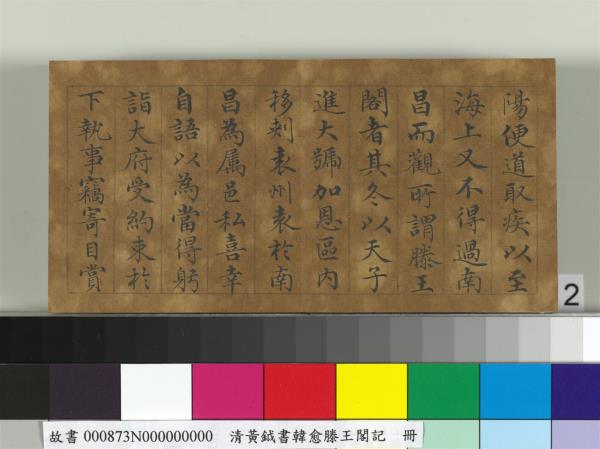 陽便道取疾以至
海上又不得過南
昌而觀所謂滕王
閣者其冬以天子
進大號加恩區內
移刺袁州袁於南
昌為属邑私喜幸
自語以為當得躬
詣大府受約束於
下執事竊寄目賞
2
故書 000873N000000000 清黃鉞書韓愈滕王閣記 冊